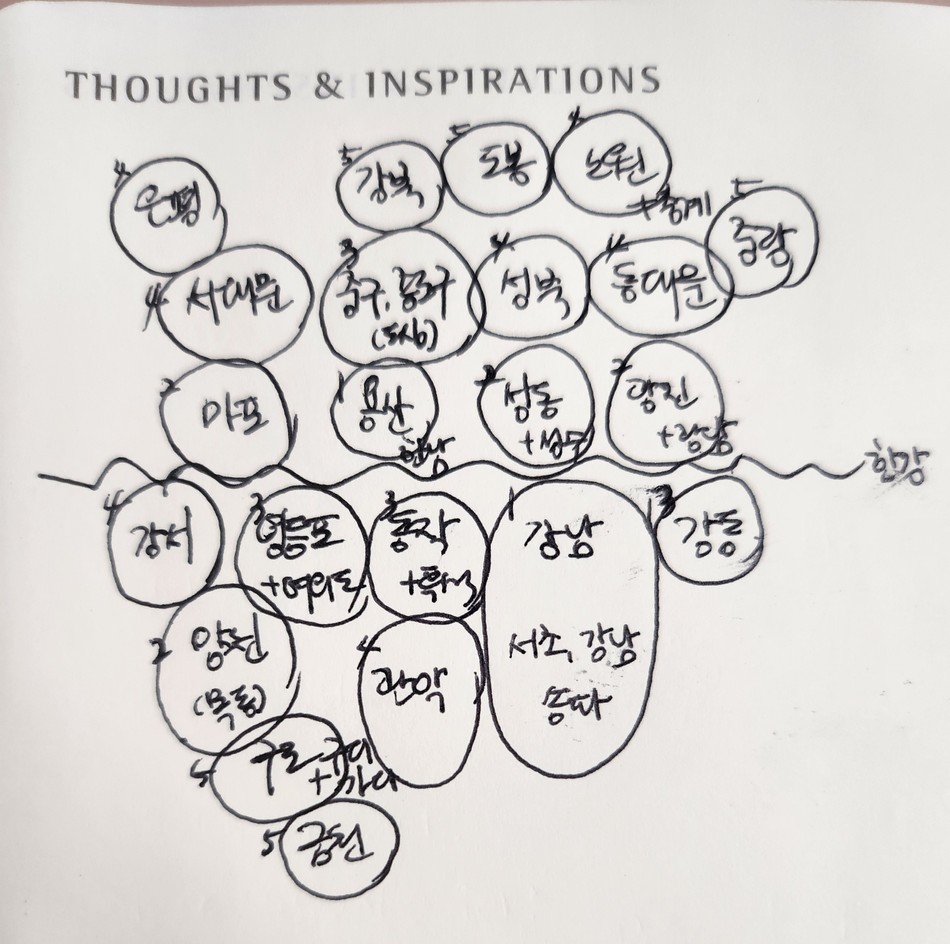 THOUGHTS & INSPIRATIONS
4
은평
5
강북
5
도봉
4
노원
+중계
5
중랑
4
서대문
3
중구, 종로구
(도심)
4
성북
4
동대문
2
마포
1
용산
한남
2
성동
+성수
2
광진
+광장
한강
4
강서
3
영등포
+여의도
3
동작
+흑석
1
강남
서초, 강남
송파
3
강동
2
양천
(목동)
4
관악
5
구로 구디
+ 가디
5
금천